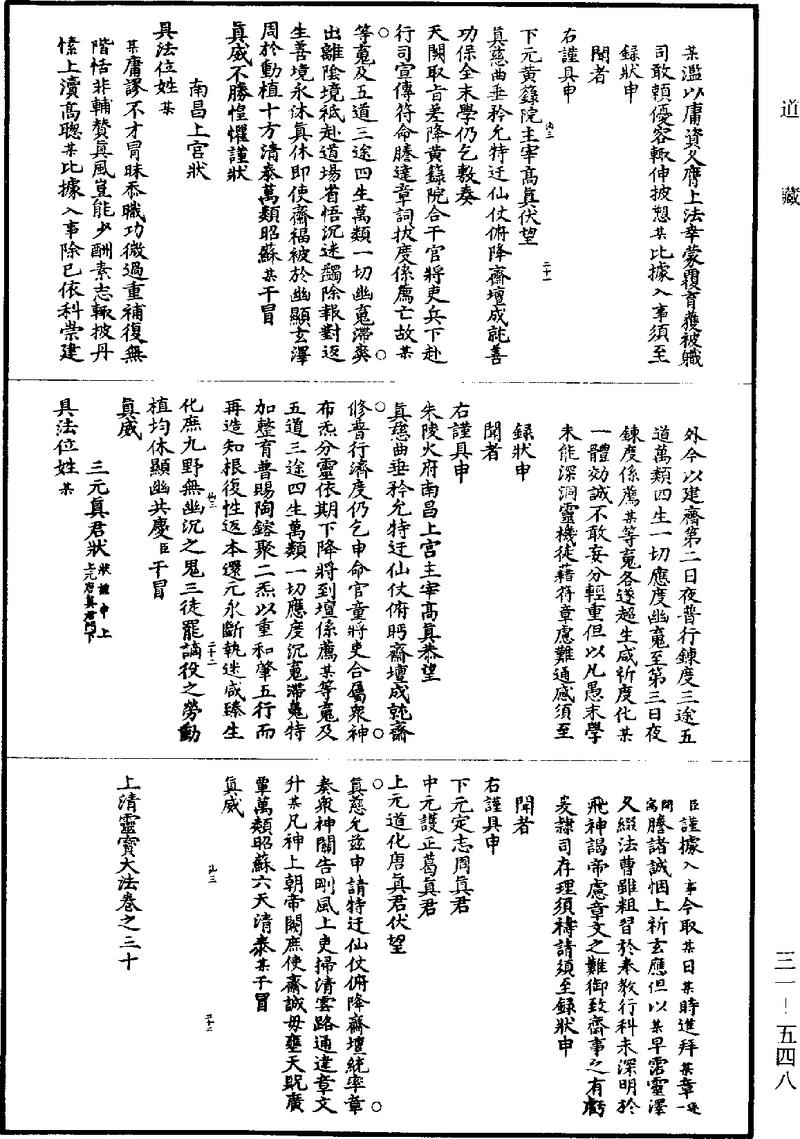 道藏
某濫以庸資久膺上法幸蒙覆育獲被職
司敢賴優容輒伸披懇某比據入事須至
錄狀申
聞者
右謹具申
下元黃籙院主宰高真伏望
真慈曲垂矜允特迂仙仗俯降齋壇成就善
功保全末學仍乞敷奏
天闕取旨差降黃籙院合干官將吏兵下赴
行司宣傳符命騰達章詞拔度係薦亡故某
等䰟及五道三途四生萬類一切幽䰟滯爽
出離陰境袛赴道場省悟沉迷蠲除報對返
生善境永沐真休即使齋福被於幽顯玄澤
周於動植十方清泰萬類昭蘇某干冒
真威不勝惶懼謹狀
南昌上宮狀
具法位姓某
某庸謬不才冒昧忝職功微過重補復無
階恬非輔贊真風豈能少酬素志輒披丹
愫上瀆高聰某比據入事除已依科崇建
外今以建齋第二日夜普行鍊度三途五
道萬類四生一切應度幽䰟至第三日夜
鍊度係薦某等䰟各遂超生咸祈度化某
一體効誠不敢妄分輕重但以凡愚末學
未能深洞靈機徒藉符章慮難通感須至
錄狀申
聞者
右謹具申
朱陵火府南昌上宮主宰高真恭望
真慈曲垂矜允特迂仙仗俯眄齋壇成就齋
修普行濟度仍乞申命官童將吏合屬眾神
布炁分靈依期下降將到壇係薦某等䰟及
五道三途四生萬類一切應度沉䰟滯魄特
加整育普賜陶鎔聚二炁以重和肇五行而
再造知根復性返本還元永斷執迷咸臻生
化庶九野無幽沉之鬼三徒罷謫役之勞動
植均休顯幽共慶臣干冒
真威
三元真君狀狀謹申上上元唐真君門下
具法位姓某
臣謹據入事今取某日某時進拜某章一
騰諸誠悃上祈玄應但以某早霑靈澤
久綴法曹雖粗習於奉教行科未深明於
飛神謁帝慮章文之難御致齋事之有虧
爰隸司存理須禱請須至錄狀申
聞者
右謹具申
下元定志周真君
中元護正葛真君
上元道化唐真君伏望
真慈允茲申請特迂仙仗俯降齋壇統率章
奏眾神關告剛風上吏掃清雲路通達章文
升某凡神上朝帝闕庶使齋誠毋壅天貺廣
覃萬類昭蘇六天清泰某干冒
真威
上清靈寶大法卷之三十
三一－五四八